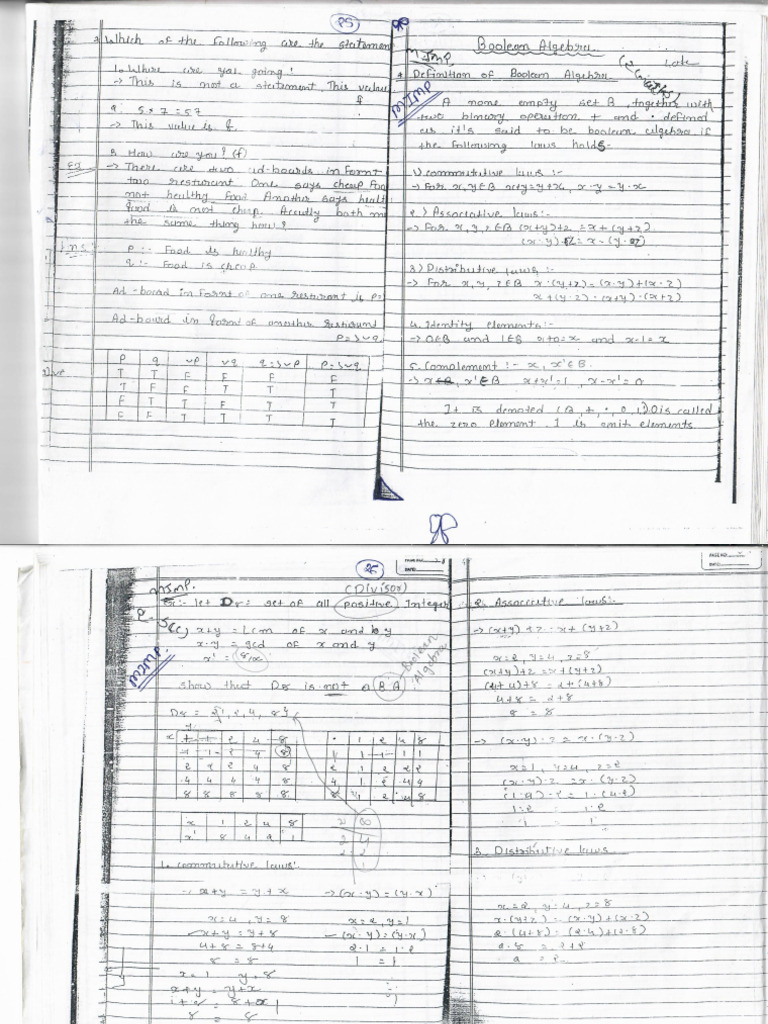 P5
Which of the following are the statemen
1. Where are you going!
→ This is not a statement. This value
f
2. 5 × 7 = 57
→ This value is f.
3. How are you? (f)
Ex → There are two ad-boards in formt
two resturent One says cheap Foo
not healthy Food Another says healt
food is not cheap.
the same thing how?
Ans. P :- Food is healthy
q :- Food is cheap
Ad-board in formt of one resturent is P=>
Ad-board in formt of another resturend
P=>~q
P q ~P ~q q=>~P P=>~q
T T F F F F
T F F T T T
F T T F T T
F F T T T T
Boolean Algebra
MIMP.
* Definition of Boolean Algebra
MIMP
A none empty set B, together with
two binary operation + and · defined
as it's said to be boolean algebra if
the following laws holds-
1) Commutative laws :-
→ For x,y∈B x+y=y+x, x·y=y·x
2.) Associative laws:-
→ For x,y,z∈B (x+y)+z=x+(y+z)
(x·y)·z=x·(y·z)
3) Distributive laws :-
→ For x,y,z∈B x·(y+z)=(x·y)+(x·z)
x+(y·z)=(x+y)·(x+z)
4. Identity elements:-
→ 0∈B and 1∈B x+0=x and x·1=x
5. Comalement :- x, x'∈B.
→ x, x'∈B x+x'=1, x·x'=0
It is denoted (B, +, ·, 0, 1) 0 is called
the zero element. 1 is unit elements
MIMP.
(Divisor)
Ex:- let D8 = set of all positive Integer
x+y = Lcm of x and y
x·y = gcd of x and y
x' = 8/x
MIMP
Boolean Algebra
show that D8 is not a B A
D8 = {1, 2, 4, 8}
+ 1 2 4 8
1 1 2 4 8
2 2 2 4 8
4 4 4 4 8
8 8 8 8 8
· 1 2 4 8
1 1 1 1 1
2 1 2 2 2
4 1 2 4 4
8 1 2 4 8
x 1 2 4 8
x' 8 4 2 1
1. Commutative laws:
→ x+y = y+x → (x·y)=(y·x)
x=4, y=8 x=2, y=1
x+y = y+x (x·y)=(y·x)
4+8 = 8+4 2·1 = 1·2
8 = 8 1 = 1
x=1 y=8
x+y = y+x
8 = 8
2. Associative laws:-
→ (x+y)+z = x+(y+z)
x=2, y=4, z=8
(x+y)+z=x+(y+z)
(2+4)+8 = 2+(4+8)
4+8 = 2+8
8 = 8
→ (x·y)·z = x·(y·z)
x=1, y=4, z=2
(x·y)·z = x·(y·z)
(1·4)·2 = 1·(4·2)
1·2 = 1·2
1 = 1
3. Distributive laws
x=2, y=4, z=8
x·(y+z)=(x·y)+(x·z)
2·(4+8)=(2·4)+(2·8)
2·8 = 2+2
2 = 2